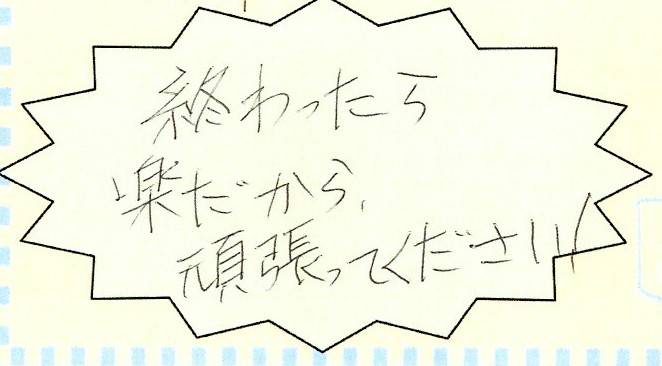 終わったら
楽だから、
頑張ってください!